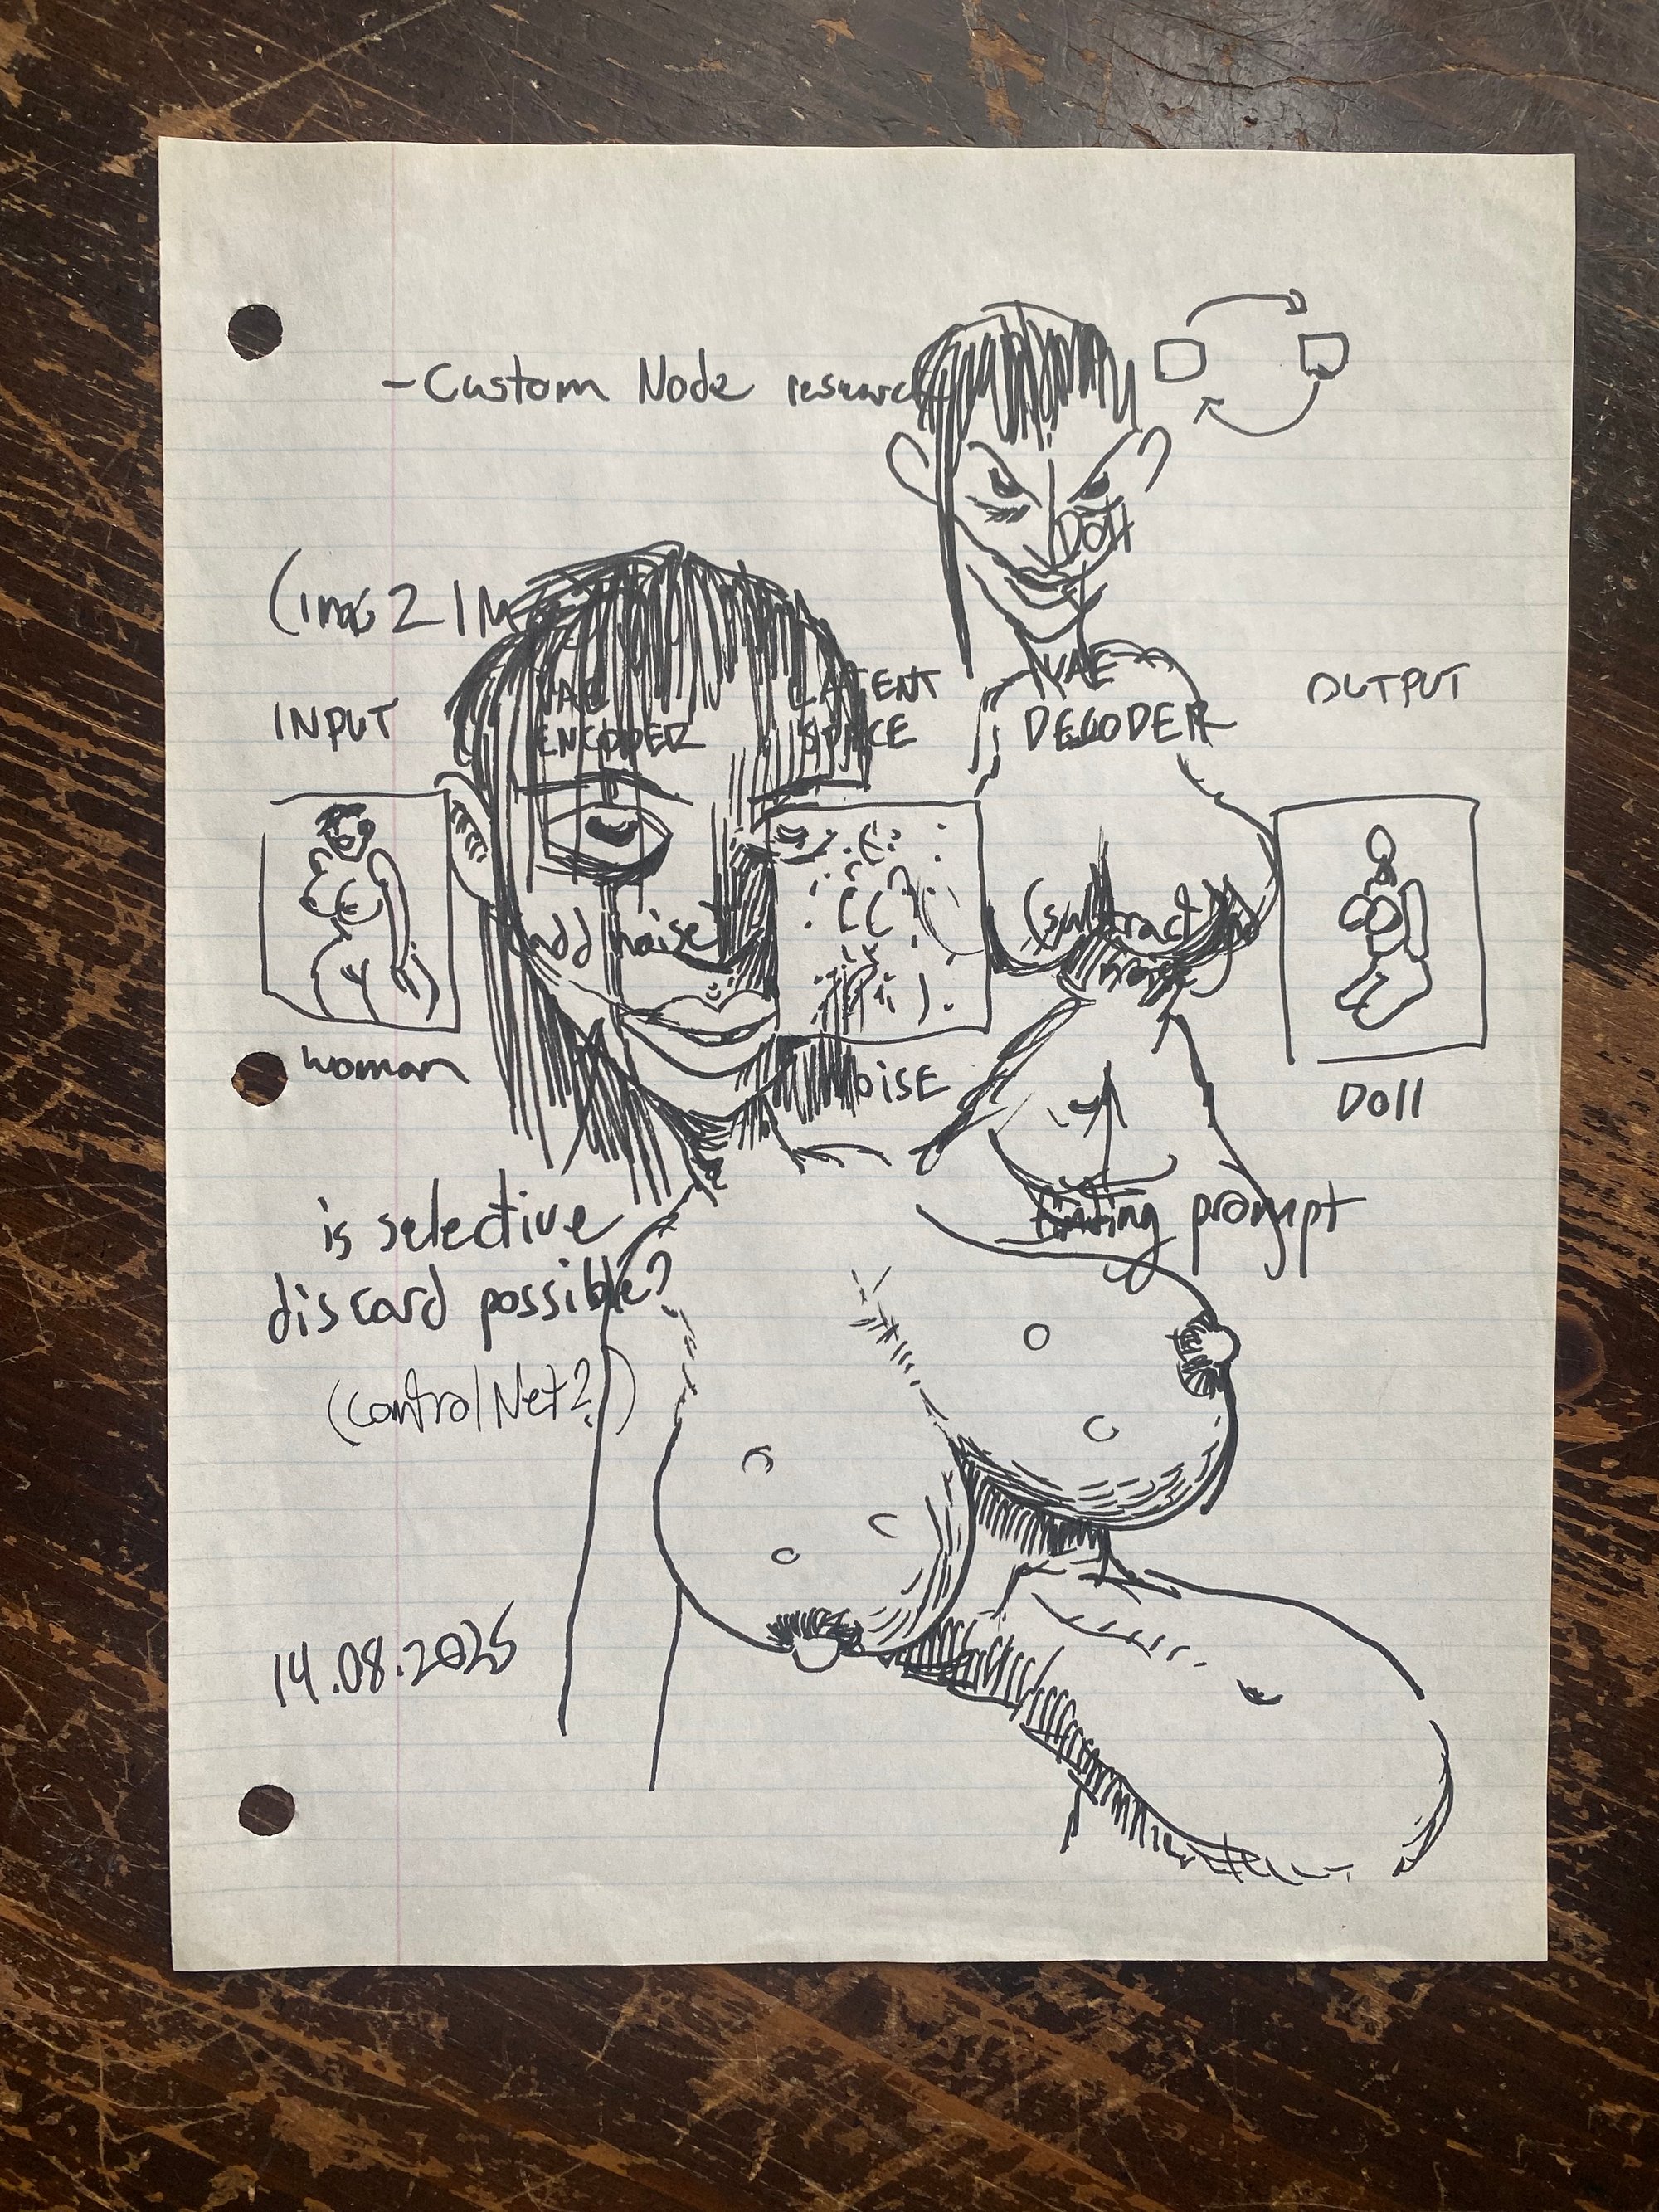 - Custom Node research
Doll
(IMG 2 IM
INPUT
VAE
ENCODER
LATENT
SPACE
VAE
DECODER
OUTPUT
(add noise)
(subtract
noise)
woman
NOISE
Doll
is selective
discard possible?
(ControlNet?)
prompt
14.08.2025